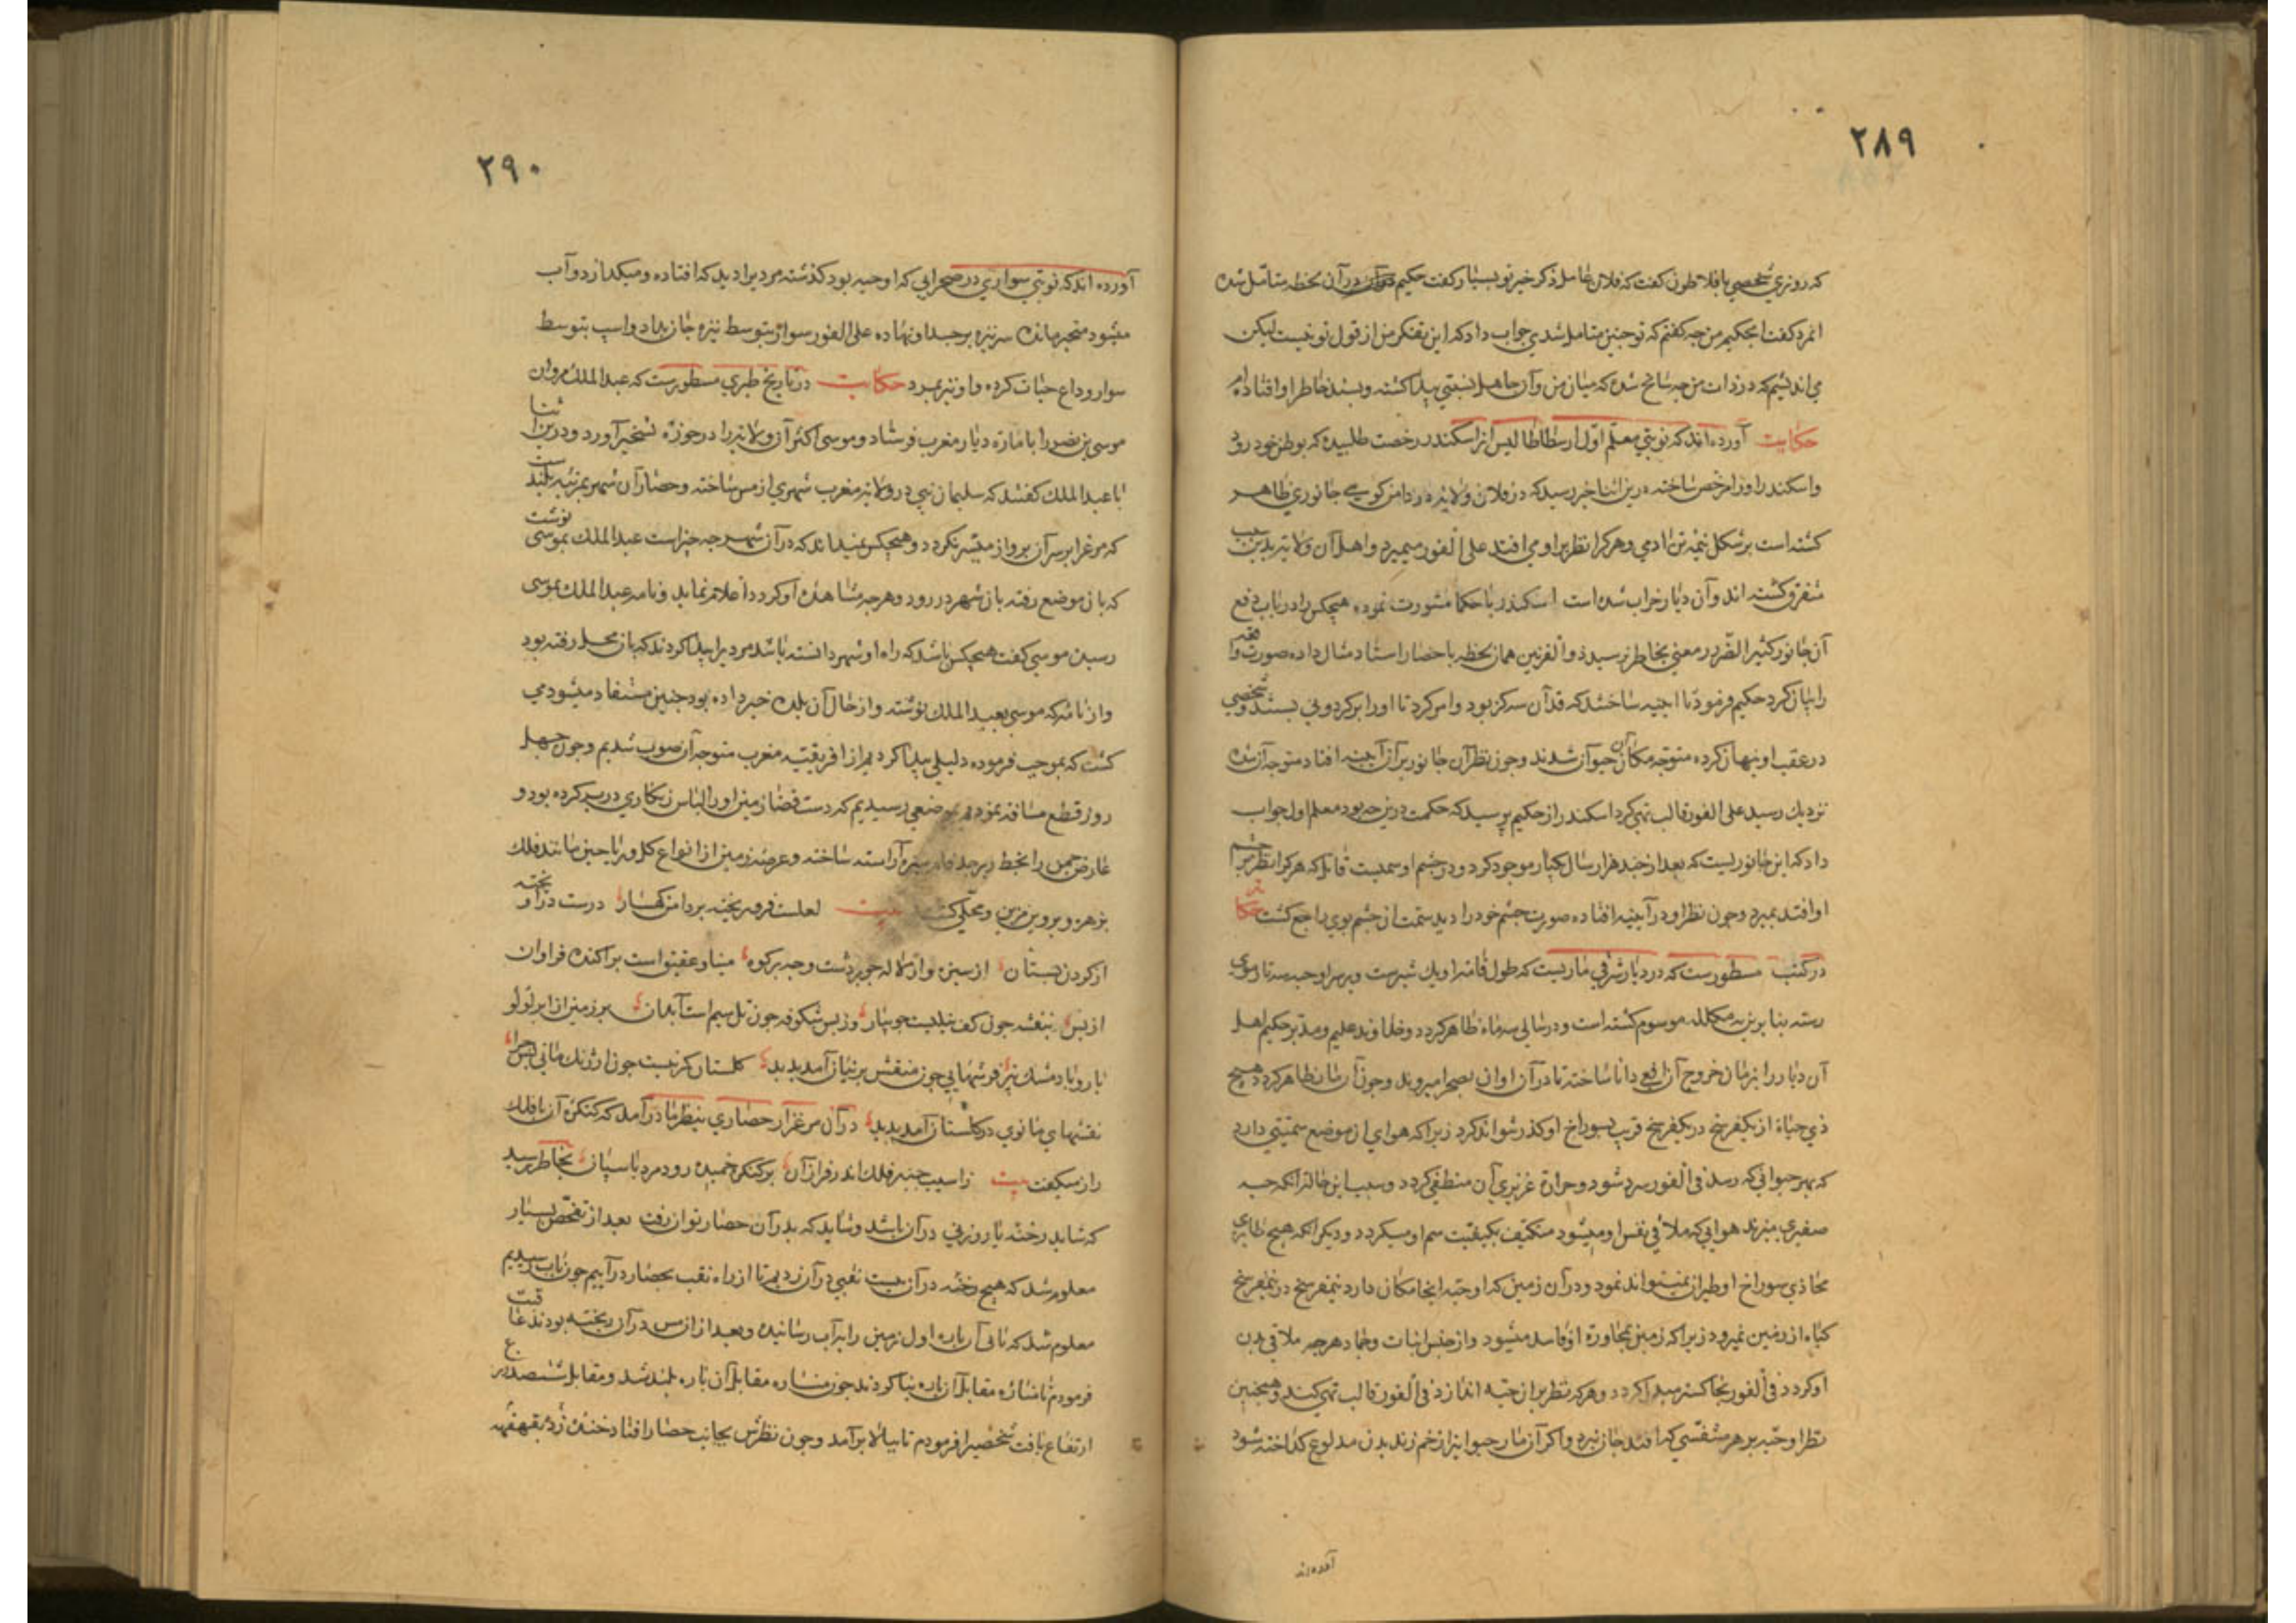 ۲۸۹
که روزی شخصی بافلاطون گفت که فلان عامل ذکر خیر تو بسیار گفت حکیم در آن لحظه متامل شده
انمرد کفت ایحکیم من چه کفتم که تو چنین متامل شدی جواب داد که این تفکر من از قول تو نیست لیکن
می اندیشم که در ذات من چه سانح شده که میان من و آن جاهل نسبتی پیدا کشته و پسند خاطر او افتاده‌ام
حکایت آورده‌اند که نوبتی معلم اول ارسطاطالیس از اسکندر رخصت طلبیده که بوطن خود رود
و اسکندر او را مرخص ساخته درین اثنا خبر رسید که در فلان ولایه در دامن کوهی جانوری ظاهر
کشته است بر شکل نیمه تن ادمی و هر کرا نظر بر او می افتد علی الفور میمیرد و اهل آن ولایه بدین سبب
متفرق کشته اند و آن دیار خراب شده است اسکندر با حکما مشورت نموده هیچکس را در باب دفع
آن جانور کثیر الضرر معنی بخاطر نرسید ذو القرنین همان لحظه باحضار استاد مثال داده صورت واقعه
را بیان کرد حکیم فرمود تا اجنیه ساختند که قد آن سه کز بود و امر کرد تا او را بر کردونی بستند و شخصی
در عقب او پنهان کرده متوجه مکان آن حیوان شدند و چون نظر آن جانور بر آن آینه افتاد متوجه آن شده
نزدیك رسید علی الفور قالب تهی کرد اسکندر از حکیم پرسید که حکمت درین چه بود معلم اول جواب
داد که این جانوریست که بعد از چند هزار سال یکبار موجود کردد و در چشم او سمیست قاتل که هر کرا نظر بر چشم
او افتد بمیرد و چون نظر او در آیینه افتاده صورت چشم خود را دید سمت از چشم بوی راجع کشت حکایت
در کتب مسطورست که در دیار شرقی ماریست که طول قامة او یك شبرست و بر سر او حیه سه تار موی
رسته بنابرین به مکلله موسوم کشته است و در سالی سه ماه ظاهر کردد و خداوند علیم و مدبر حکیم اهل
آن دیار را بزمان خروج آن افعی دانا ساخته تا در آن اوان بصحرا میروند و چون آن مار ظاهر کردد هیچ
ذی حیاة از یکفرسخ در یکفرسخ قرب بسوراخ او کذر نتواند کرد زیرا که هوای از موضع سمیتی دارد
که بهر حیوانی که رسد فی الفور سرد شود و حرارة غریزی آن منطفی کردد و سبب این حالة آنکه حیه
صفیری میزند هوایی که ملاقی نفس او میشود متکیف بکیفیت سم او میکردد و دیکر انکه هیچ طایری
محاذی سوراخ او طیران نمیتواند نمود و در آن زمین که او حیه ایجا مکان دارد نیمفرسخ در نیمفرسخ
کیاه از زمین نمیروید زیرا که زمین بمجاورة او فاسد میشود و از جنس نبات و جماد هر چه ملاقی بدن
او کردد فی الفور بخاکستر مبدل کردد و هر که نظر بر ان حیه اندازد فی الفور قالب تهی کند و همچنین
نظر او حیه بر هر متنفسی که افتد جان نبرد و اکر آن مار حیوانیرا زخم زند بدن ملدوغ کداخته شود
آورده‌اند
۲۹۰
آورده اند که نوبتی سواری در صحرایی که او حیه بود کذشته مردیرا دید که افتاده و میکدازد و آب
میشود متحیر مانده سر نیزه بر جسد او نهاده علی الفور سوار بتوسط نیزه جان بداد و اسپ بتوسط
سوار وداع حیات کرده و او نیز بمرد حکایت در تاریخ طبری مسطورست که عبد الملك مروان
موسی بن نضیر را بامارة دیار مغرب فرستاد و موسی اکثر آن ولایه را در حوزه تسخیر آورد و درین اثنا
با عبد الملك کفتند که سلیمان نبی در ولایه مغرب شهری از مس ساخته و حصار آن شهر بمرتبه بلند است
که مرغ را بر سر آن پرواز میسر نکردد و هیچکس نمیداند که در آن شهر چه چیز است عبد الملك بموسی نوشت
که بان موضع رفته بان شهر در رود و هر چه مشاهده او کردد اعلام نماید و نامه عبد الملك بموسی
رسیده موسی کفت هیچکس باشد که راه او شهر دانسته باشد مردیرا پیدا کردند که بان محل رفته بود
و از نامه که موسی بعبد الملك نوشته و از حال آن بلده خبر داده بود چنین مستفاد میشود می
کشت که بموجب فرموده دلیلی پیدا کردیم از افریقیه مغرب متوجه آن صوب شدیم و چون چهل
روز قطع مسافة نمودیم بموضعی رسیدیم که دست قضا زمین او را لباس زنکاری در بر کرده بود و
عارض چمن را بخط زبرجد فام سبزه آراسته ساخته و عرصه زمین از انواع کل و ریاحین مانند فلك
بزهره و پروین مزین و محلی کشته بیت لعلست فرو ریخته بر دامن کهسار درست در او پخته
از کردن بستان از سبزه و از لاله چه بر دشت و چه بر کوه مینا و عقیق است پراکنده فراوان
از بس بنفشه چون کف نیلیست جویبار وز بس شکوفه چون تل سیم است آبدان بر زمین از ابر لؤلو
بار و باد مشك بیز فرشهایی چون منقش پرنیان آمد پدید کلستان کر نیست چون ارژنك مانی پس چرا
نقشهای مانوی در کلستان آمد پدید در آن مرغزار حصاری بنظر ما در آمد که کنکره آن با فلك
راز میکفت بیت ز اسیب چنبر فلك اندر فراز آن بر کنکره خمیده رود مرد پاسبان بخاطر رسید
که شاید رخنه یا روزنی در آن باشد و شاید که بدر آن حصار توان رفت بعد از تفحص بسیار
معلوم شد که هیچ رخنه در آن نیست نقبی در آن زدیم تا از راه نقب بحصار در آییم چون بآب رسیدیم
معلوم شد که بانی آن باره اول زمین را بآب رسانیده و بعد از آن مس در آن ریخته بودند عاقبت
فرمودم تا مناره مقابل آن باره بنا کردند چون مناره مقابل آن باره بلند شد و مقابل ششصد درع
ارتفاع یافت شخصیرا فرمودم تا ببالا برآمد و چون نظرش بجانب حصار افتاد خنده زد بقهقهه